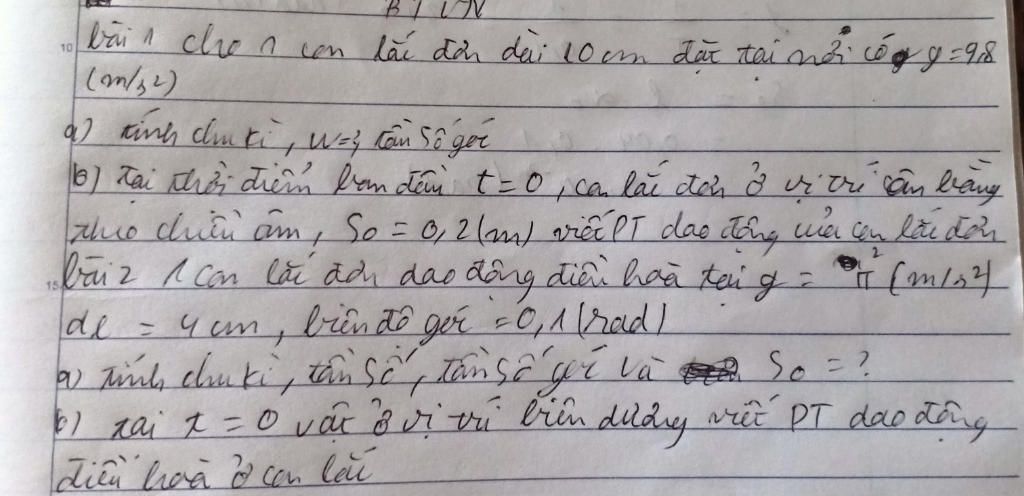 BTVN
bài 1 cho 1 con lắc đơn dài 10 cm đặt tại nơi có g = 9,8
(m/s2)
a) tính chu kì, w=?, tần số góc
b) tại thời điểm ban đầu t = 0, con lắc đơn ở vị trí cân bằng
theo chiều âm, So = 0,2 (m) viết PT dao động của con lắc đơn
bài 2 1 con lắc đơn dao động điều hoà tại g = π² (m/s2)
dl = 4 cm, biên độ góc = 0,1 (rad)
a) tính chu kì, tần số, tần số góc và So = ?
b) tại t = 0 vật ở vị trí biên dương viết PT dao động
điều hoà ở con lắc